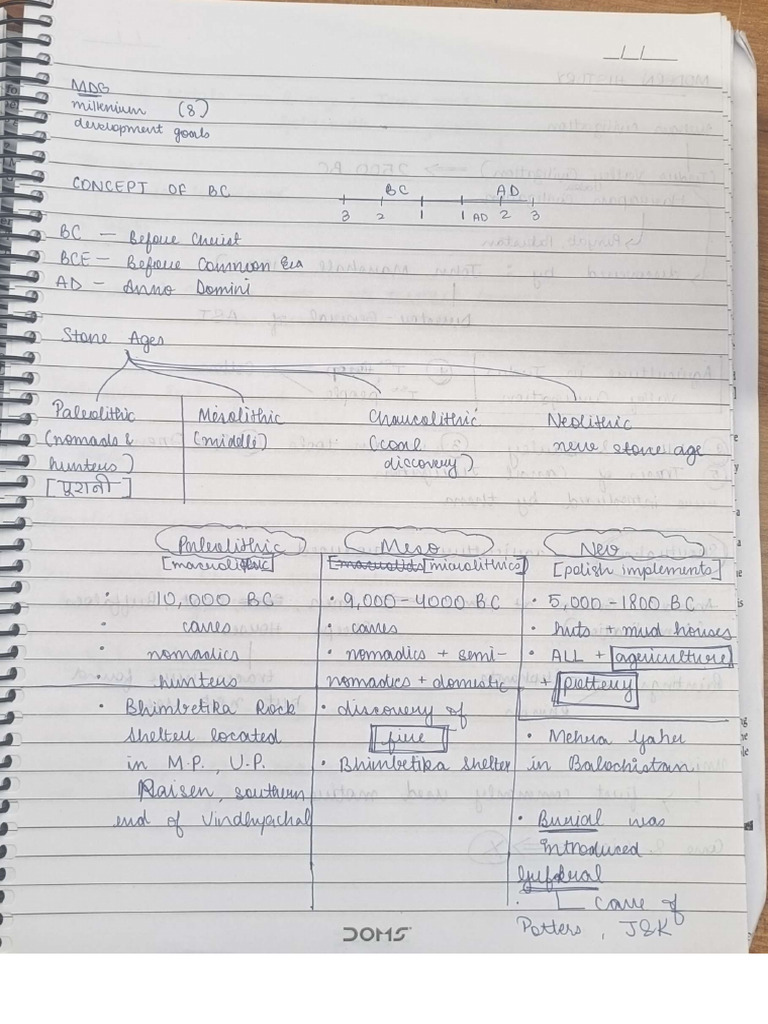 MDG
millenium (8)
development goals
CONCEPT OF BC
BC AD
3 2 1 1 AD 2 3
BC — Before Christ
BCE — Before Common Era
AD — Anno Domini
Stone Ages
Paleolithic Mesolithic Chaucolithic Neolithic
(nomads & (middle) (coal new stone age
hunters) discovery)
[पूरानी]
Paleolithic Meso New
[macrolithic] [microlithics] [polish implements]
• 10,000 BC • 9,000 – 4000 BC • 5,000 – 1800 BC
• caves • caves • huts + mud houses
• nomadics • nomadics + semi- • ALL + agriculture
• hunters nomadics + domestic + pottery
• Bhimbetika Rock • discovery of
shelter located fire • Mehra Gaher
in M.P., U.P. • Bhimbetika shelter in Balochistan
Raisen, southern
end of Vindhyachal • Burial was
introduced.
Gufkral
• cave of
Potters, J&K
DOMS